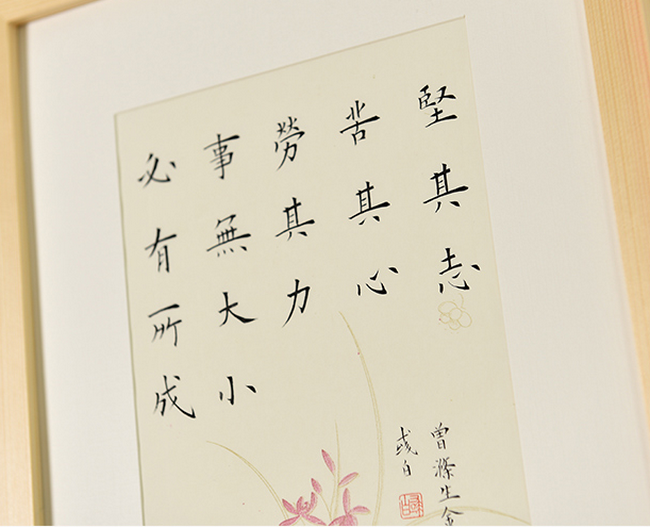 堅其志
苦其心
勞其力
事無大小
必有所成
曾滌生金